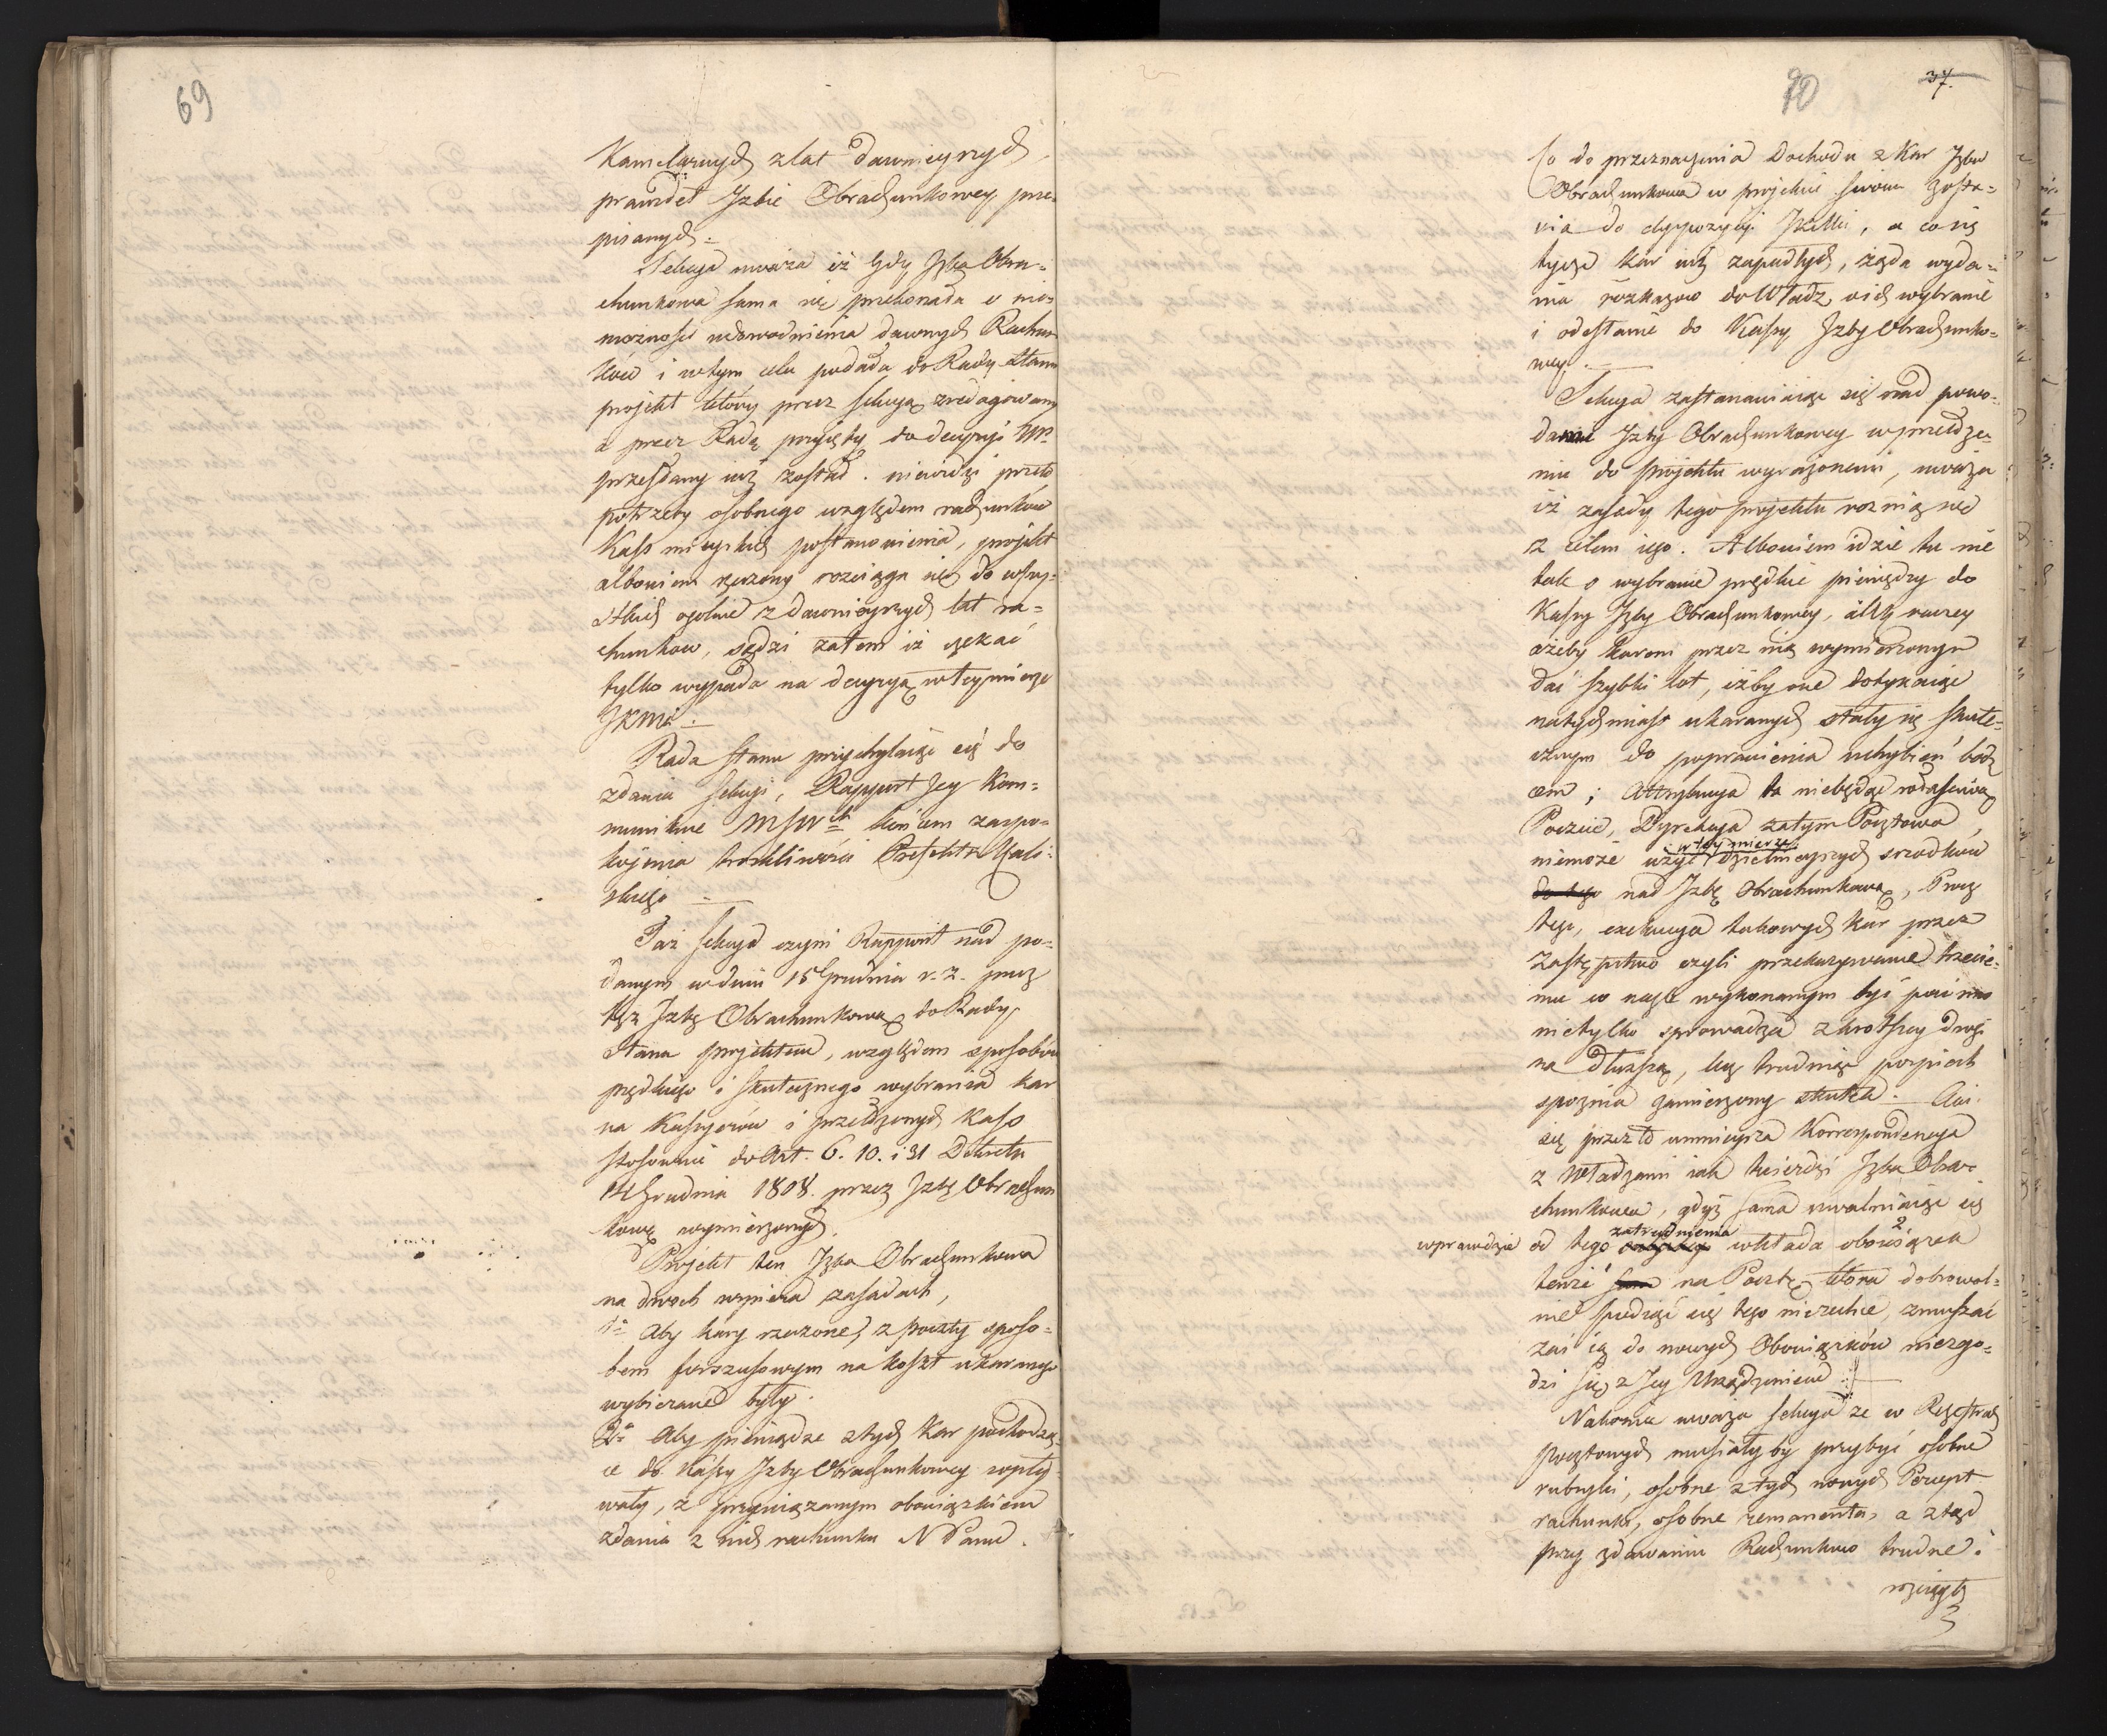 69
Kamelarnych z lat dawnieyszych
prawideł Izbie Obrachunkowey prze-
pisanych.
Sekcya uważa iż gdy Izba Obra-
chunkowa sama się przekonała o nie-
możności udowodnienia dawnych Rachun-
ków i w tym celu podała do Rady Stanu
projekt który przez Sekcyą zredagowany
a przez Radę przyięty do decyzyi NPa
przesłany iuż został. niewidzi przeto
potrzeby osobnego względem rachunków
Kass mieyskich postanowienia, projekt
albowiem rzeczony rozciąga się do wszy-
stkich ogolnie z dawnieyszych lat ra-
chunkow, sądzi zatem iż czekać
tylko wypada na decyzyą w tey mierze
JKMci.
Rada Stanu przychylaiąc się do
zdania Sekcyi, Rapport Jey Kom-
munikuie MSWch końcem zaspo-
koienia troskliwości Prefekta Kali-
skiego
Taż Sekcya czyni Rapport nad po-
danym w dniu 15 Grudnia r. z. przez
tęż Izbę Obrachunkową do Rady
Stanu projektem, względem sposobów
prędkiego i skutecznego wybrania kar
na Kassyerów i przełożonych Kass
stosownie do Art. 6. 10. i 31 Dekretu
14 Grudnia 1808. przez Izbę Obrachun
kową wymierzonych.
Projekt ten Izba Obrachunkowa
na dwoch wspiera zasadach,
1o Aby kary rzeczone, z poczty sposo-
bem forszusowym na koszt ukaranego
wybierane były.
2o Aby pieniądze z tych Kar pochodzą-
ce do Kassy Izby Obrachunkowey wpły-
wały, z przywiązanym obowiązkiem
zdania z nich rachunku N Panu.
70
37.
Co do przeznaczenia Dochodu z Kar Izba
Obrachunkowa w projekcie swoim zosta-
wia do dyspozycyi JKMci, a co się
tycze kar iuż zapadłych, żąda wyda-
nia rozkazow do Władz, o ich wybranie
i odesłanie do Kassy Izby Obrachunko-
wey.
Sekcya zastanawiaiąc się nad powo-
dami Izby Obrachunkowey w przełoże-
niu do projektu wyrażonemi, uważa
iż zasady tego projektu roznią się
z celem iego. Albowiem idzie tu nie
tak o wybranie prędkie pieniędzy do
Kassy Izby Obrachunkowey, ile raczey
ażeby karom przez nią wymierzonym
dać szybki lot, iżby one dotykaiąc
natychmiast ukaranych stały się skute-
cznym do poprawienia uchybień bodź
cem; Attrybucya ta niebędąc właściwą
Poczcie, Dyrekcya zatym Pocztowa
w tey mierze
niemoże użyć dzielnieyszych srzodków
do tego nad Izbę Obrachunkową, Prócz
tego, exekucya takowych kar przez
zastępstwo czyli przekazywanie trzecie-
mu co nagle wykonanym być powinno
nietylko sprowadza z krotszey drogi
na dłuższą, lecz trudniąc pospiech
spoznia zamierzony skutek. Ani
się przez to umnieysza Korrespondencya
z Władzami iak twierdzi Izba Obra-
chunkowa, gdyż sama uwalniaiąc się
zatrudnienia 2
wprawdzie od tego wkłada obowiązek
tenże 1 sam na Pocztę która dobrowol-
nie podiąć się tego niezechce, zmuszać
zaś ią do nowych Obowiązków niezgo-
dzi się z Jey Urządzeniem.
Nakoniec uważa Sekcya że w Regestrach
pocztowych musiałyby przybyć osobne
rubryki, osobne z tych nowych Percept
rachunki, osobne remanenta, a ztąd
przy zdawaniu Rachunkow trudne i
rozciągłe